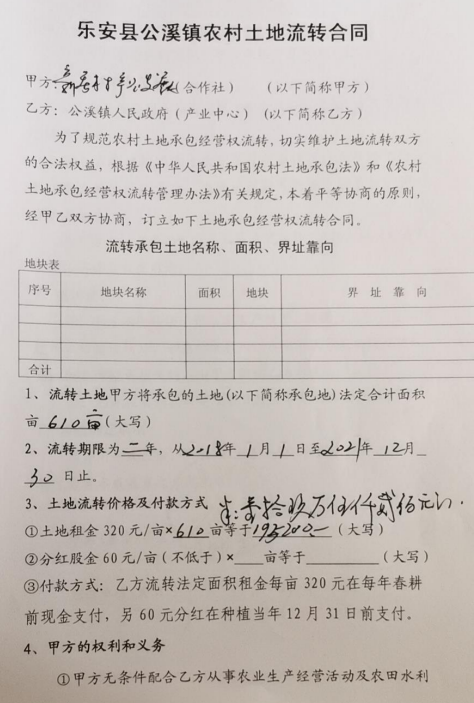 乐安县公溪镇农村土地流转合同
甲方: (合作社) (以下简称甲方)
乙方：公溪镇人民政府（产业中心）(以下简称乙方)
为了规范农村土地承包经营权流转，切实维护土地流转双方
的合法权益，根据《中华人民共和国农村土地承包法》和《农村
土地承包经营权流转管理办法》有关规定，本着平等协商的原则，
经甲乙双方协商，订立如下土地承包经营权流转合同。
流转承包土地名称、面积、界址靠向
地块表
序号 地块名称 面积 地块 界址靠向
合计
1、流转土地甲方将承包的土地(以下简称承包地)法定合计面积
亩 610亩 (大写)
2、流转期限为二年，从2018年1月1日至2021年12月
30日止。
3、土地流转价格及付款方式 拾玖万伍仟贰佰元
①土地租金 320 元/亩×610亩等于195200 (大写)
②分红股金 60 元/亩（不低于）×____亩等于________(大写)
③付款方式：乙方流转法定面积租金每亩 320 元在每年春耕
前现金支付，另 60 元分红在种植当年 12 月 31 日前支付。
4、甲方的权利和义务
①甲方无条件配合乙方从事农业生产经营活动及农田水利